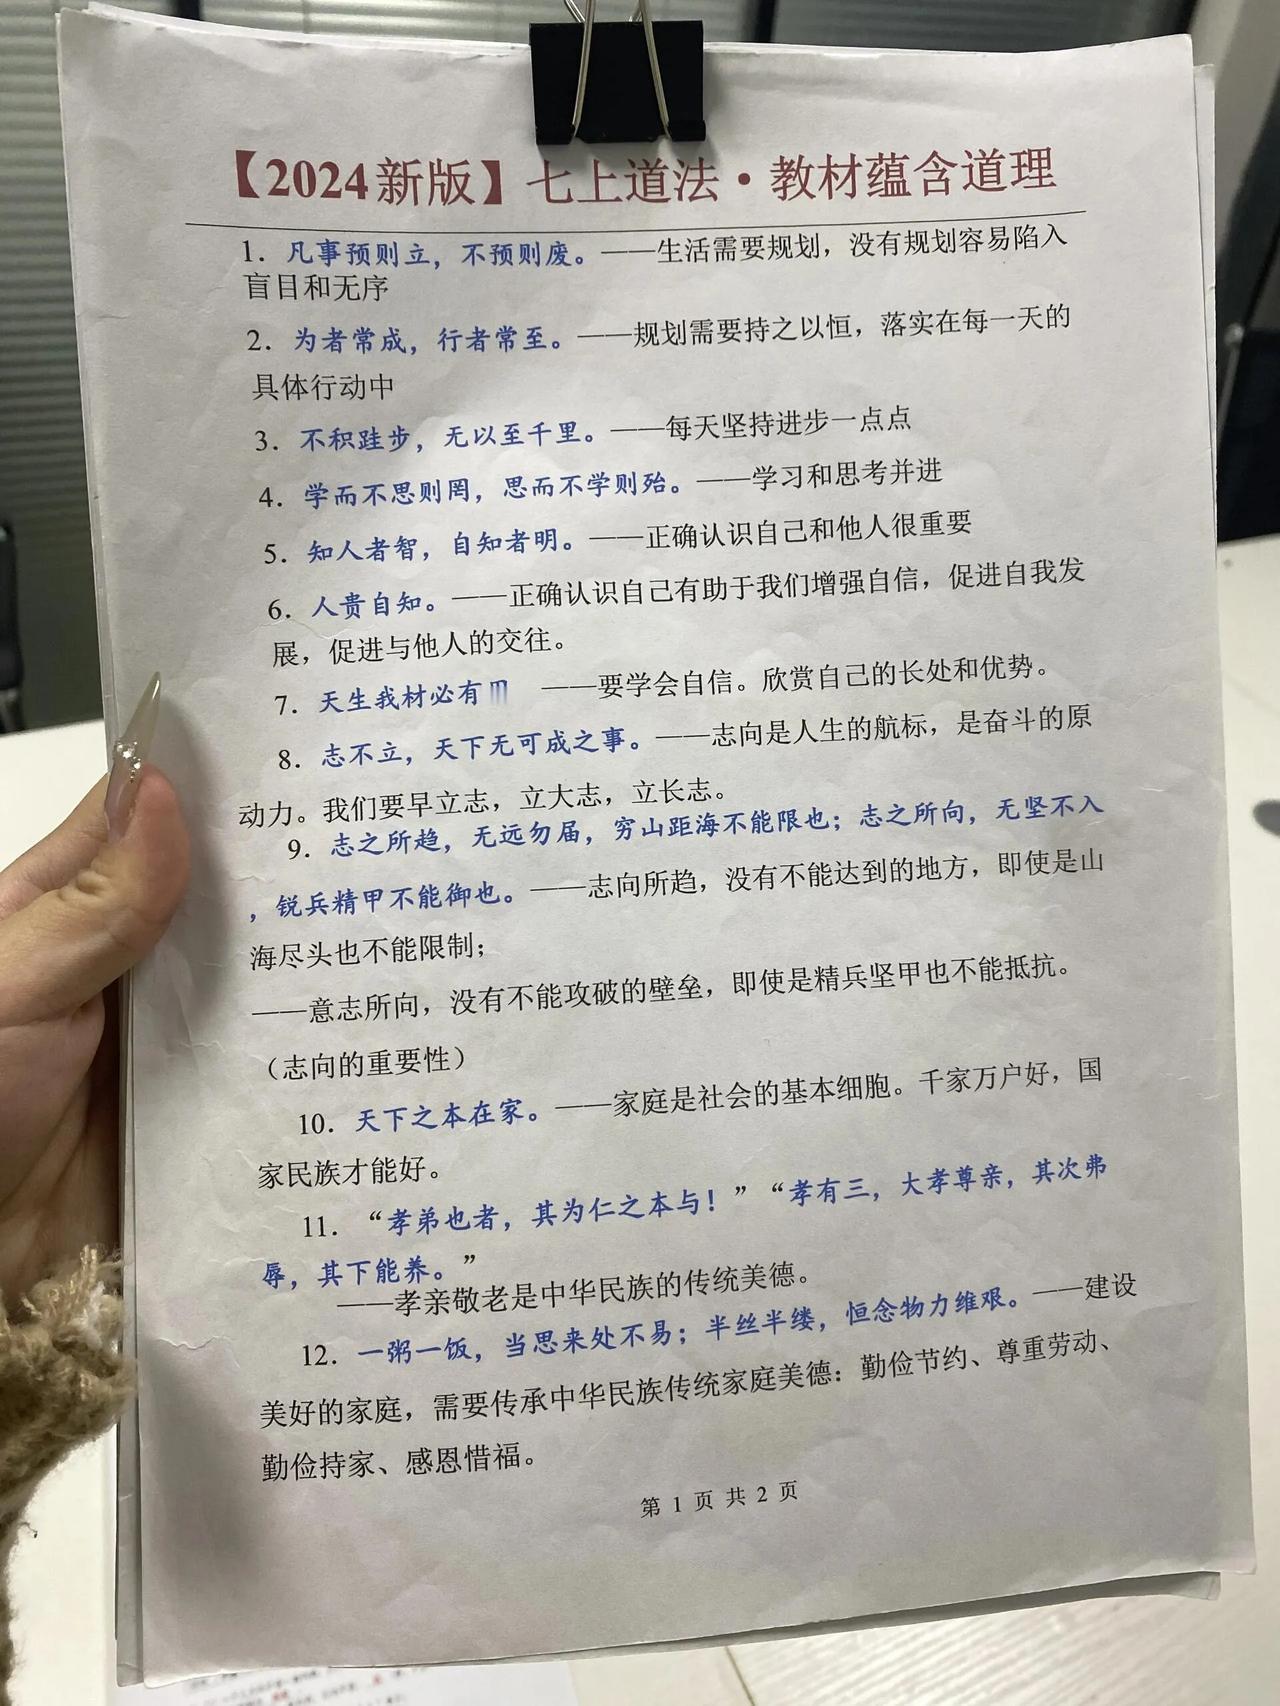 【2024新版】七上道法·教材蕴含道理
1. 凡事预则立，不预则废。——生活需要规划，没有规划容易陷入
盲目和无序
2. 为者常成，行者常至。——规划需要持之以恒，落实在每一天的
具体行动中
3. 不积跬步，无以至千里。——每天坚持进步一点点
4. 学而不思则罔，思而不学则殆。——学习和思考并进
5. 知人者智，自知者明。——正确认识自己和他人很重要
6. 人贵自知。——正确认识自己有助于我们增强自信，促进自我发
展，促进与他人的交往。
7. 天生我材必有 ——要学会自信。欣赏自己的长处和优势。
8. 志不立，天下无可成之事。——志向是人生的航标，是奋斗的原
动力。我们要早立志，立大志，立长志。
9. 志之所趋，无远勿届，穷山距海不能限也；志之所向，无坚不入
，锐兵精甲不能御也。——志向所趋，没有不能达到的地方，即使是山
海尽头也不能限制；
——意志所向，没有不能攻破的壁垒，即使是精兵坚甲也不能抵抗。
（志向的重要性）
10. 天下之本在家。——家庭是社会的基本细胞。千家万户好，国
家民族才能好。
11. “孝弟也者，其为仁之本与！”“孝有三，大孝尊亲，其次弗
辱，其下能养。”
——孝亲敬老是中华民族的传统美德。
12. 一粥一饭，当思来处不易；半丝半缕，恒念物力维艰。——建设
美好的家庭，需要传承中华民族传统家庭美德：勤俭节约、尊重劳动、
勤俭持家、感恩惜福。
第 1 页 共 2 页